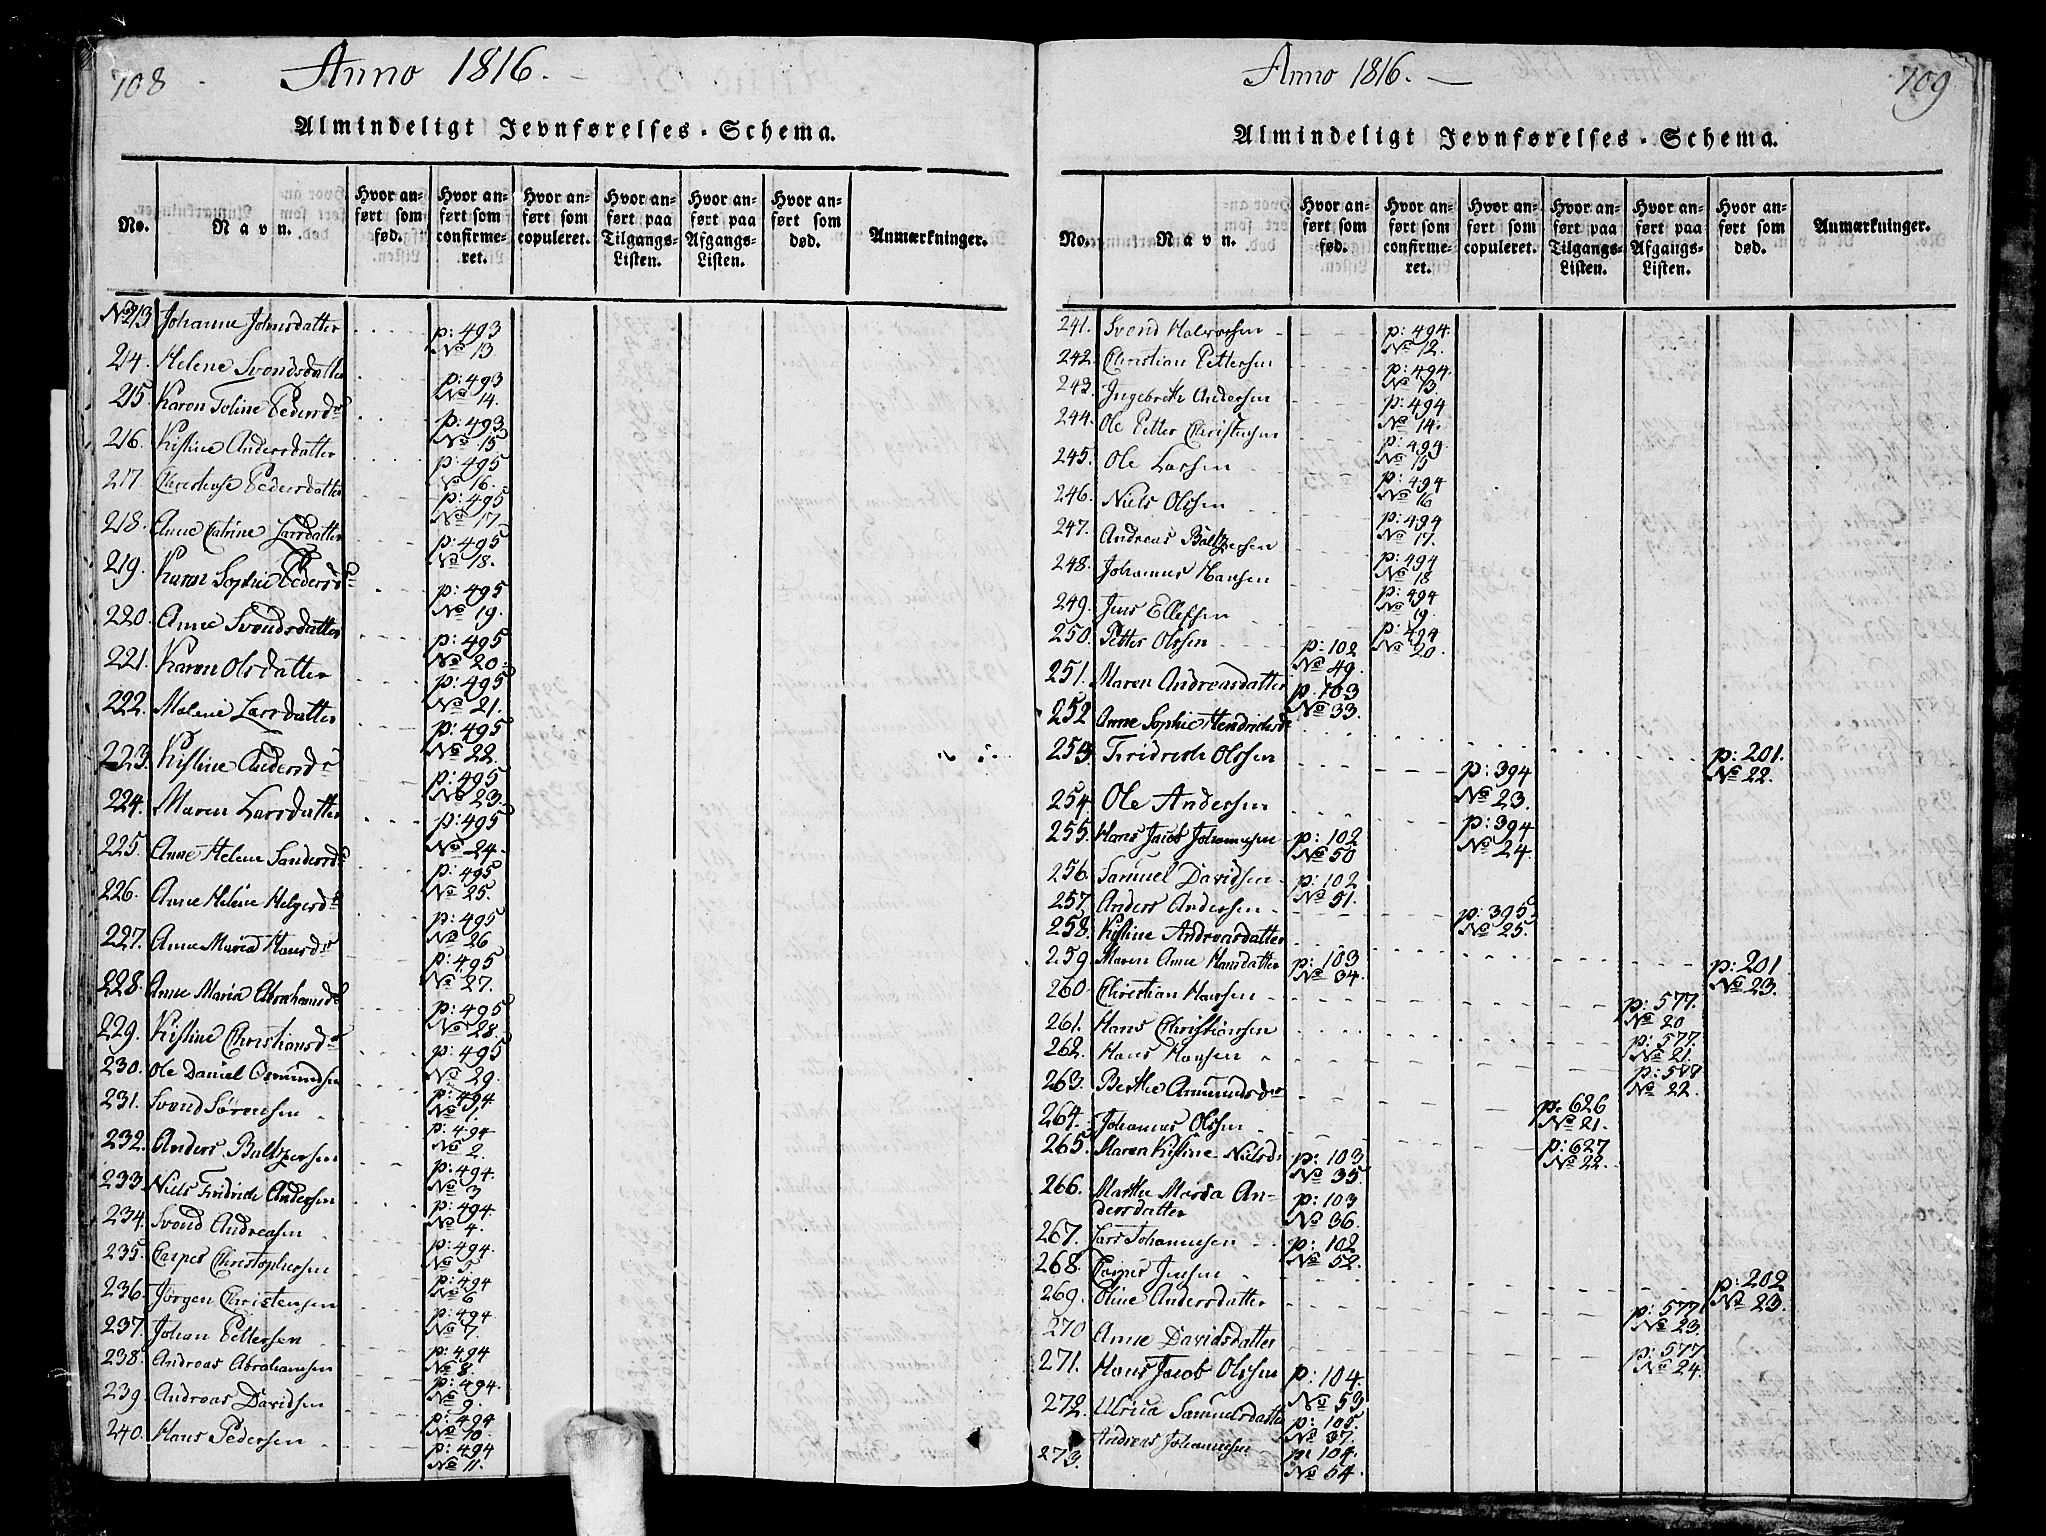 708
Anno 1816.
Almindeligt Jevnførelses-Schema.
No. Navn. Hvor anført som fød. Hvor anført som confirmeret. Hvor anført som copuleret. Hvor anført paa Tilgangs-Listen. Hvor anført paa Afgangs-Listen. Hvor anført som død. Anmærkninger.
No 213 Johanne Johnsdatter p: 493 No 13
214. Helene Svendsdatter p: 493 No 14.
215. Karen Toline Pedersdr p: 493 No 15
216. Kistine Andersdatter p: 495 No 16.
217. Pedersdatter p: 495 No 17.
218. Anne Catrine Larsdatter p: 495 No 18.
219. Karen Sophie Pedersdr p: 495 No 19.
220. Anne Svendsdatter p: 495 No 20.
221. Karen Olsdatter p: 495 No 21.
222. Malene Larsdatter p: 495 No 22.
223. Kistine Andersdr p: 495 No 23.
224. Maren Larsdatter p: 495 No 24.
225. Anne Helene Sandersdr p: 495 No 25.
226. Anne Helene Helgersdr p: 495 No 26
227. Anne Maria Hansdr p: 495 No 27.
228. Anne Maria Abrahamsdr p: 495 No 28
229. Kistine Christiansdr p: 495 No 29.
230. Ole Daniel Osmundsen p: 494 No 1.
231. Svend Sørensen p: 494 No 2.
232. Anders Baltzersen p: 494. No 3
233. Niels Fridrich Andersen p: 494. No 4.
234. Svend Andreasen p: 494. No 5.
235. Casper Christophersen p: 494 No 6
236. Jørgen Christensen p: 494 No 7.
237. Johan Pettersen p: 494 No 8.
238. Andreas Abrahamsen p: 494. No 9.
239. Andreas Davidsen p: 494 No 10.
240. Hans Pedersen p: 494 No 11.
Anno 1816.
709
Almindeligt Jevnførelses-Schema.
No. Navn. Hvor anført som fød. Hvor anført som confirmeret. Hvor anført som copuleret. Hvor anført paa Tilgangs-Listen. Hvor anført paa Afgangs-Listen. Hvor anført som død. Anmærkninger.
241. Svend Halvorsen p: 494. No 12.
242. Christian Pettersen p: 494. No 13.
243. Ingebreth Andersen p: 494 No 14.
244. Ole Petter Christensen p: 494. No 15
245. Ole Larsen p: 494 No 16
246. Niels Olssen p: 494 No 17.
247. Andreas Baltzersen p: 494 No 18
248. Johannes Hansen p: 494 No 19.
249. Jens Ellefsen p: 494 No 20.
250. Petter Olssen p: 102 No 49.
251. Maren Andreasdatter p. 103 No 33.
252 Anne Sophie Hendrichsdr p: 201. No 22.
253. Fridrich Olssen p: 394 No 23.
254. Ole Andersen p: 394 No 24.
255. Hans Jacob Johannesen p: 102 No 50
256. Samuel Davidsen p: 102 No 51.
257. Anders Andersen p: 395. No 25.
258. Kistine Andreasdatter p: 201 No 23.
259. Maren Anne Hansdatter p: 103 No 34.
260. Christian Hansen p: 577. No 20
261. Hans Christiansen p: 577. No 21.
262. Hans Hansen p: 577 No 22.
263. Berthe Amundsdr p. 626 No 21.
264. Johannes Olssen p: 627 No 22.
265. Maren Kistine Nielsdr p: 103 No 35.
266. Marthe Maria Andersdatter p: 103 No 36.
267. Lars Johannesen p: 102 No 52.
268. Casper Jensen p: 202 No 23.
269. Oline Andersdatter p: 577 No 23.
270 Anne Davidsdatter p: 577 No 24.
271. Hans Jacob Olssen p: 104. No 53
272. Ulrica Samuelsdatter p: 105 No 37.
273. Andreas Johannesen p: 104. No 54.